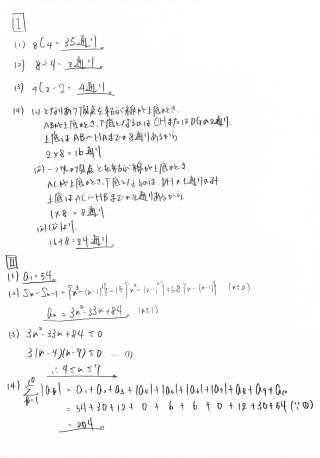 I
(1) 8C4 = 35通り
(2) 8÷4 = 2通り
(3) 4C2-2 = 4通り
(4) (i) となりあう頂点を結ぶ線が上底のとき、
ABが上底のとき、下底となるのは CHまたはDGの2通り
上底は AB〜HAまでの8通りあるから
2×8 = 16通り
(ii) 一つ次の頂点とを結ぶ線が上底のとき
ACが上底のとき、下底となるのは、DHの1通りのみ
上底はAC〜HBまでの8通りあるから、
1×8 = 8通り
(i)(ii)より、
16+8=24通り
II
(1) a₁=54
(2) Sn-Sn-1 = {n³-(n-1)³}-15{n²-(n-1)²}+58{n-(n-1)} (n≧2)
an = 3n²-33n+84 (n≧1)
(3) 3n²-33n+84≦0
3(n-4)(n-7)≦0 — ①
∴ 4≦n≦7
(4) Σ|ak| = a₁+a₂+a₃+|a₄|+|a₅|+|a₆|+|a₇|+a₈+a₉+a₁₀
= 54+30+12+0+6+6+0+12+30+54 (∵①)
= 204